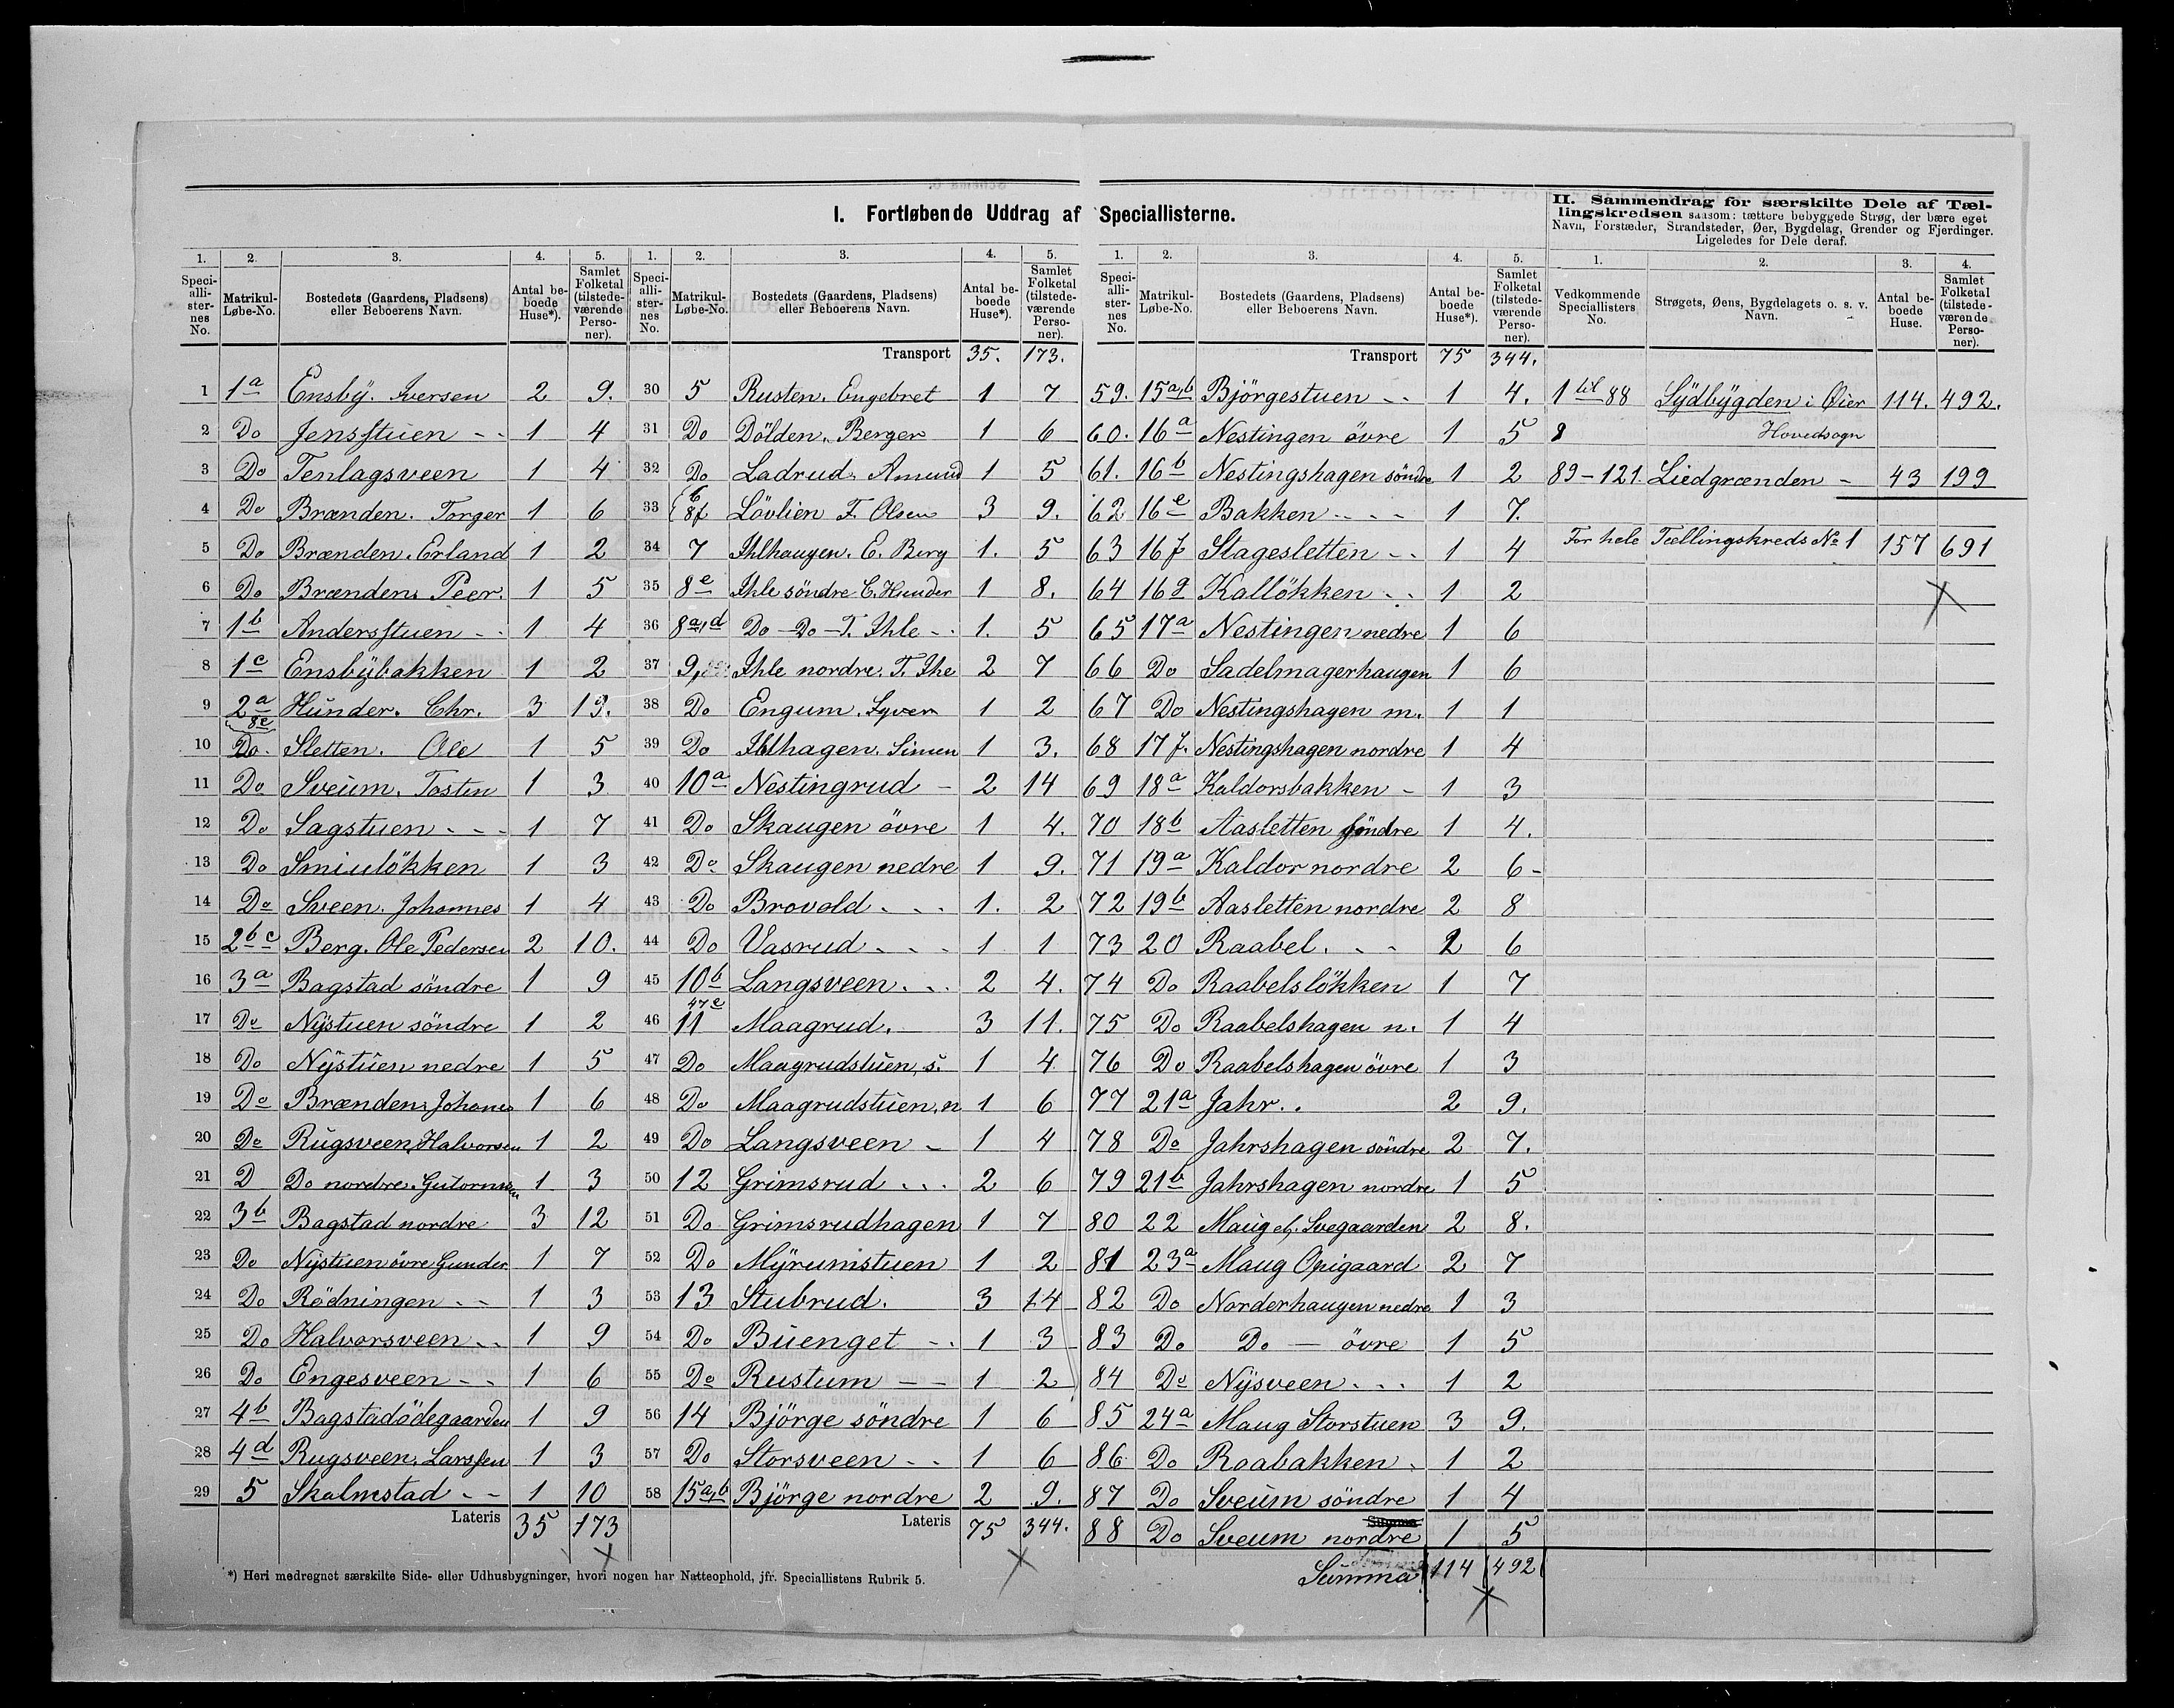 I. Fortløbende Uddrag af Speciallisterne.
1. 2. 3. 4. 5.
Speciallisternes No. Matrikul-Løbe-No. Bostedets (Gaardens, Pladsens) eller Beboerens Navn. Antal beboede Huse*). Samlet Folketal (tilstedeværende Personer).
1 1a Ensby. Iversen 2 9.
2 Do Jensstuen - - 1 4
3 Do Tenlagsveen 1 4
4 Do Brænden. Torger 1 6
5 Do Brænden. Erland 1 2
6 Do Brænden. Peer. 1 5
7 1b Andersstuen - - 1 4
8 1c Ensbybakken 1 2
9 2a 8c Hunder. Chr. 3 19.
10 Do. Sletten. Ole 1 5
11 Do Sveum. Tosten 1 3
12 Do Sagstuen - - - 1 7
13 Do Smiulökken 1 3
14 Do Sveen. Johannes 1 4
15 2b c Berg. Ole Pedersen 2 10.
16 3a Bagstad söndre 1 9
17 Do Nystuen söndre 1 2
18 Do Nystuen nedre 1 5
19 Do Brænden. Johanes 1 6
20 Do Rugsveen, Halvorsen 1 2
21 D Do nordre. Gutormsen 1 3
22 3b Bagstad nordre 3 12
23 Do Nystuen övre Gunder 1 7
24 Do Rödningen - - 1 3
25 Do Halvorsveen - - 1 9
26 Do Engesveen - - 1 6
27 4b Bagstadödegaarden 1 9
28 4d Rugsveen. Larssen 1 3
29 5 Skalmstad - - 1 10
Lateris 35 173
*) Heri medregnet særskilte Side- eller Udhusbygninger, hvori nogen har Natteophold, jfr. Speciallistens Rubrik 5.
1. 2. 3. 4. 5.
Speciallisternes No. Matrikul-Løbe-No. Bostedets (Gaardens, Pladsens) eller Beboerens Navn. Antal beboede Huse*). Samlet Folketal (tilstedeværende Personer).
Transport 35. 173.
30 5 Rusten. Engebret 1 7
31 Do Dölden. Berger 1 6
32 Do Ladrud. Amund 1 5
33 6 8f Lövlien T. Olsen 3 9.
34 7 Ihlhaugen. E. Berg 1. 5
35 8e Ihle söndre C. Hunder 1 8.
36 8a,d Do - Do - T. Ihle - - 1. 5
37 9, Ihle nordre. T. Ihe 2 7
38 Do Engum. Syver 1 2
39 Do Ihlhagen. Simen 1 3.
40 10a Nestingrud - 2 14
41 Do Skaugen övre 1 4.
42 Do Skaugen nedre 1 9.
43 Do Brovold - - - 1. 2
44 Do Vasrud - - - 1 1
45 10b Langsveen. - - 2 4.
46 47e 11 Maagrud. - 3 11.
47 Do Maagrudstuen, s. 1 4
48 Do Maagrudstuen, n 1 6
49 Do Langsveen - 1 4
50 12 Grimsrud - - - 2 6
51 Do Grimsrudhagen 1 7
52 Do Myrumstuen 1 2
53 13 Stubrud. 3 14
54 Do Buenget - - 1 3
55 Do Rustum - - 1 2
56 14 Björge söndre 1 6
57 Do Storsveen - - 1 6
58 15a,b Björge nordre 2 9.
Lateris 75 344.
1. 2. 3. 4. 5.
Speciallisternes No. Matrikul-Løbe-No. Bostedets (Gaardens, Pladsens) eller Beboerens Navn. Antal beboede Huse*). Samlet Folketal (tilstedeværende Personer).
Transport 75 344.
59. 15a,b Björgestuen - - 1 4.
60. 16a Nestingen övre 1 5
61. 16b Nestingshagen söndre 1 2
62 16e Bakken - - - 1 7.
63 16f Stagesletten - - 1 4
64 16g Kallökken - - 1 2
65 17a Nestingen nedre 1 6
66 Do Sadelmagerhaugen 1 6
67 Do Nestingshagen m. 1 1
68 17f. Nestingshagen nordre 1 4
69 18a Kaldorsbakken - 1 3
70 18b Aasletten söndre 1 4.
71 19a Kaldor nordre 2 6 -
72 19b Aasletten nordre 2 8
73 20 Raabel. - - 2 6
74 Do Raabelslökken 1 7
75 Do Raabelshagen n. 1 4
76 Do Raabelshagen övre 1 3
77 21a Jahr. . 2 9.
78 Do Jahrshagen söndre 2 7.
79 21b Jahrshagen nordre 1 5
80 22 Maug el. Svegaarden 2 8.
81 23a Maug Opigaard 2 7
82 Do Norderhaugen nedre 1 3
83 Do Do - övre 1 5
84 Do Nysveen - - - 1 2
85 24a Maug Storstuen 3 9.
86 Do Raabakken - 1 2
87 Do Sveum söndre 1 4
Summa
88 Do Sveum nordre 1 5
Summa 114 492
II. Sammendrag for særskilte Dele af Tæl-
lingskredsen saasom: tættere bebyggede Strøg, der bære eget
Navn, Forstæder, Strandsteder, Øer, Bygdelag, Grender og Fjerdinger.
Ligeledes for Dele deraf.
1. 2. 3. 4.
Vedkommende Speciallisters No. Strøgets, Øens, Bygdelagets o. s. v. Navn. Antal beboede Huse. Samlet Folketal (tilstedeværende Personer).
1 til 88 Sydbygden i Øier 114. 492.
Hovedsogn
89 - 121. Liedgrænden - 43 199
For hele Tællingskreds No 1 157 691